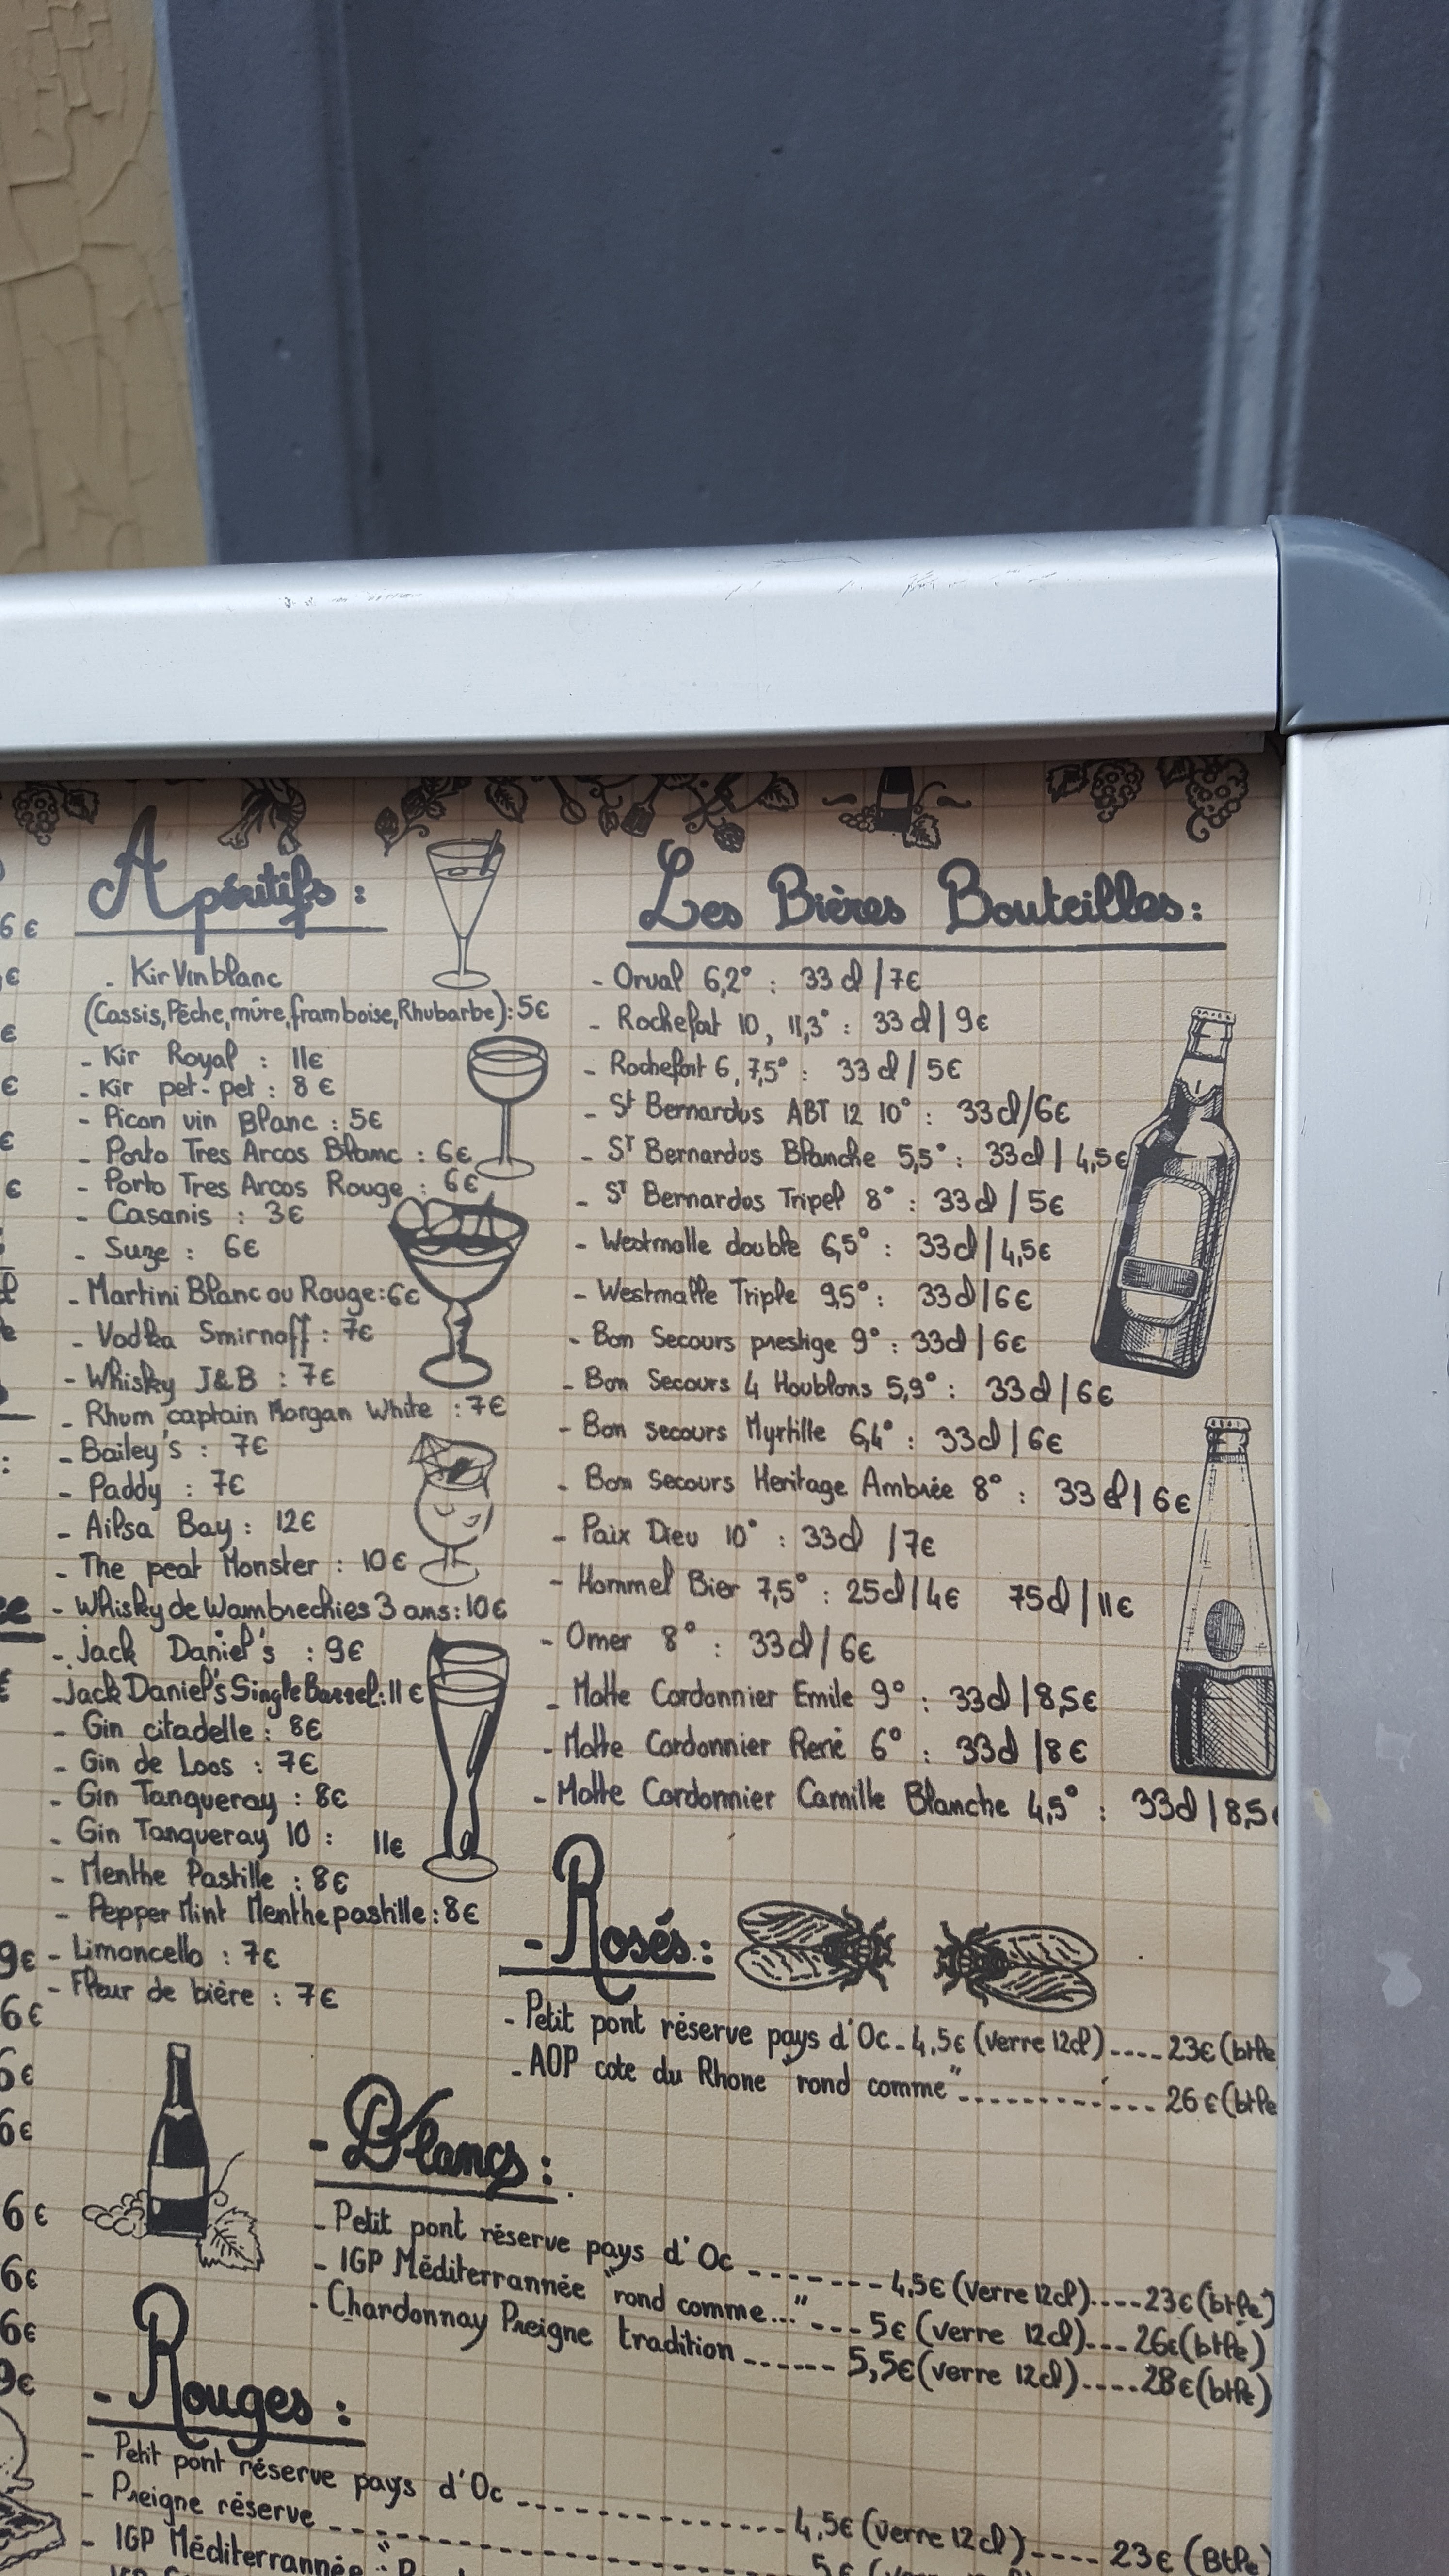 Apéritifs :
- Kir Vin blanc
(Cassis, Pêche, mûre, framboise, Rhubarbe) : 5€
- Kir Royal : 11€
- Kir pet-pet : 8€
- Picon vin Blanc : 5€
- Porto Tres Arcos Blanc : 6€
- Porto Tres Arcos Rouge : 6€
- Casanis : 3€
- Suze : 6€
- Martini Blanc ou Rouge : 6€
- Vodka Smirnoff : 7€
- Whisky J&B : 7€
- Rhum captain Morgan White : 7€
- Bailey's : 7€
- Paddy : 7€
- Ailsa Bay : 12€
- The peat Monster : 10€
- Whisky de Wambrechies 3 ans : 10€
- Jack Daniel's : 9€
- Jack Daniel's Single Barrel : 11€
- Gin citadelle : 8€
- Gin de Loos : 7€
- Gin Tanqueray : 8€
- Gin Tanqueray 10 : 11€
- Menthe Pastille : 8€
- Pepper Mint Menthe pastille : 8€
- Limoncello : 7€
- Fleur de bière : 7€
Les Bières Bouteilles :
- Orval 6,2° : 33 cl / 7€
- Rochefort 10, 11,3° : 33 cl | 9€
- Rochefort 6, 7,5° : 33 cl / 5€
- St Bernardus ABT 12 10° : 33cl/6€
- ST Bernardus Blanche 5,5° : 33cl | 4,5€
- ST Bernardus Tripel 8° : 33cl / 5€
- Westmalle double 6,5° : 33cl / 4,5€
- Westmalle Triple 9,5° : 33cl | 6€
- Bon Secours prestige 9° : 33cl | 6€
- Bon Secours 4 Houblons 5,9° : 33cl | 6€
- Bon secours Myrtille 6,4° : 33cl | 6€
- Bon Secours Heritage Ambrée 8° : 33 cl | 6€
- Paix Dieu 10° : 33cl / 7€
- Hommel Bier 7,5° : 25cl / 4€ 75cl / 11€
- Omer 8° : 33cl / 6€
- Motte Cordonnier Emile 9° : 33cl | 8,5€
- Motte Cordonnier René 6° : 33cl | 8€
- Motte Cordonnier Camille Blanche 4,5° : 33cl | 8,5
- Rosés :
- Petit pont réserve pays d'Oc - 4,5€ (verre 12cl) ---- 23€ (btlle
- AOP cote du Rhone "rond comme" ------------ 26€ (btlle
- Blancs :
- Petit pont réserve pays d'Oc ------- 4,5€ (verre 12cl) ---- 23€ (btlle)
- IGP Méditerrannée "rond comme..." --- 5€ (verre 12cl) --- 26€ (btlle)
- Chardonnay Preigne tradition ------ 5,5€ (verre 12cl) ---- 28€ (btlle)
- Rouges :
- Petit pont réserve pays d'Oc -------------- 4,5€ (verre 12cl) ---- 23€ (Btlle)
- Preigne réserve ---------------- 5€
- IGP Méditerrannée "
6€
9€
6€
6€
6€
6€
6€
6€
9€